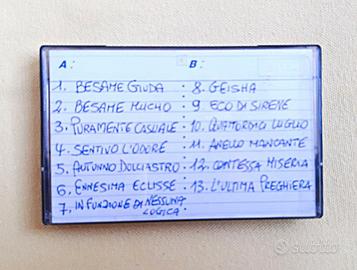 A:
1. BESAME GIUDA
2. BESAME MUCHO
3. PURAMENTE CASUALE
4. SENTIVO L'ODORE
5. AUTUNNO DOLCIASTRO
6. ENNESIMA ECLISSE
7. IN FUNZIONE DI NESSUNA
LOGICA
B:
8. GEISHA
9 ECO DI SIRENE
10. QUATTORDICI LUGLIO
11. ANELLO MANCANTE
12. CONTESSA MISERIA
13. L'ULTIMA PREGHIERA
subito